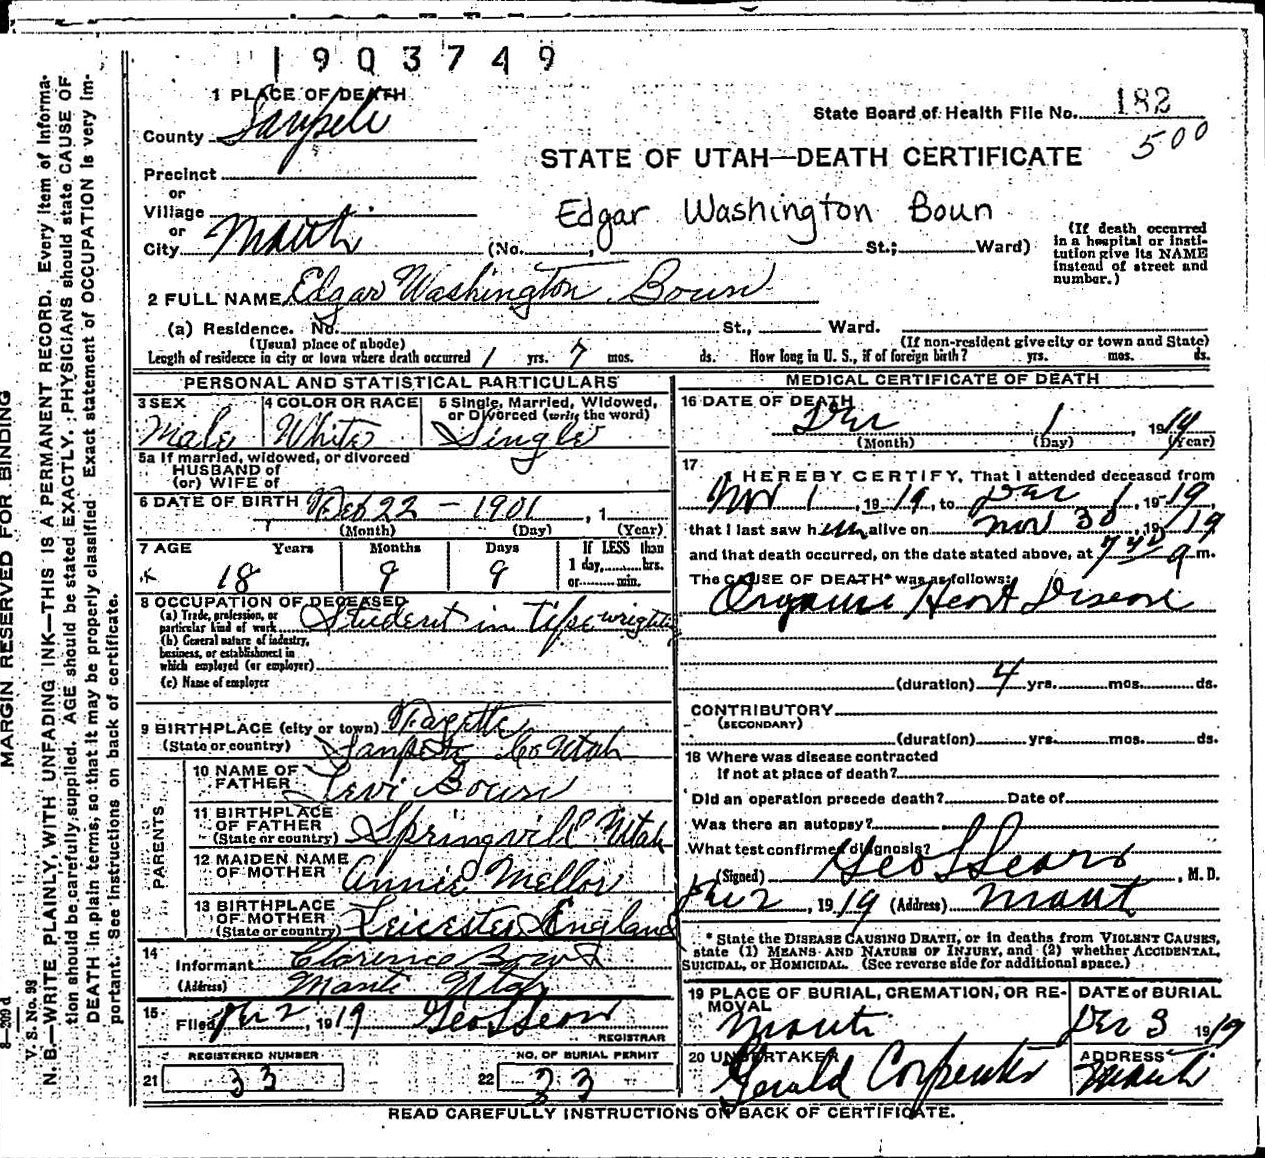 1903749
1 PLACE OF DEATH
County Sanpete
State Board of Health File No. 182
500
STATE OF UTAH—DEATH CERTIFICATE
Precinct
or
Village
or
City Manti
Edgar Washington Boun
(No. St.; Ward)
(If death occurred
in a hospital or insti-
tution give its NAME
instead of street and
number.)
2 FULL NAME Edgar Washington Boun
(a) Residence. No. St., Ward.
(Usual place of abode)
(If non-resident give city or town and State)
Length of residence in city or town where death occurred 1 yrs. 7 mos. ds. How long in U. S., if of foreign birth? yrs. mos. ds.
PERSONAL AND STATISTICAL PARTICULARS
3 SEX
Male
4 COLOR OR RACE
White
5 Single, Married, Widowed,
or Divorced (write the word)
Single
5a If married, widowed, or divorced
HUSBAND of
(or) WIFE of
6 DATE OF BIRTH Feb 22 - 1901, 1
(Month) (Day) (Year)
7 AGE Years Months Days
18 9 9
If LESS than
1 day, hrs.
or min.
8 OCCUPATION OF DECEASED
(a) Trade, profession, or
particular kind of work Student in tipe wrighting
(b) General nature of industry,
business, or establishment in
which employed (or employer)
(c) Name of employer
9 BIRTHPLACE (city or town) Fayette
(State or country) Sanpete Co Utah
PARENTS
10 NAME OF
FATHER Levi Boun
11 BIRTHPLACE
OF FATHER
(State or country) Springvill Utah
12 MAIDEN NAME
OF MOTHER Annie Mellor
13 BIRTHPLACE
OF MOTHER
(State or country) Leicester England
14
Informant Clarence Boun
(Address) Manti Utah
15
Filed Dec 2, 1919 Geo L Sears
REGISTRAR
REGISTERED NUMBER
21 33
NO. OF BURIAL PERMIT
22 33
MEDICAL CERTIFICATE OF DEATH
16 DATE OF DEATH
Dec 1, 1919
(Month) (Day) (Year)
17
I HEREBY CERTIFY, That I attended deceased from
Nov 1, 1919, to Dec 1, 1919
that I last saw him alive on Nov 30, 1919
and that death occurred, on the date stated above, at 7 a m.
The CAUSE OF DEATH* was as follows:
Organic Heart Disease
(duration) 4 yrs. mos. ds.
CONTRIBUTORY
(SECONDARY)
(duration) yrs. mos. ds.
18 Where was disease contracted
if not at place of death?
Did an operation precede death? Date of
Was there an autopsy?
What test confirmed diagnosis?
(Signed) Geo L Sears, M. D.
Dec 2, 1919 (Address) Manti
* State the DISEASE CAUSING DEATH, or in deaths from VIOLENT CAUSES,
state (1) MEANS AND NATURE OF INJURY, and (2) whether ACCIDENTAL,
SUICIDAL, or HOMICIDAL. (See reverse side for additional space.)
19 PLACE OF BURIAL, CREMATION, OR RE-
MOVAL
Manti
DATE of BURIAL
Dec 3 1919
20 UNDERTAKER
Gerald Carpenter
ADDRESS
Manti
READ CAREFULLY INSTRUCTIONS ON BACK OF CERTIFICATE.
MARGIN RESERVED FOR BINDING
8—209 d
V. S. No. 93
N. B.—WRITE PLAINLY, WITH UNFADING INK—THIS IS A PERMANENT RECORD. Every item of informa-
tion should be carefully supplied. AGE should be stated EXACTLY. PHYSICIANS should state CAUSE OF
DEATH in plain terms, so that it may be properly classified. Exact statement of OCCUPATION is very im-
portant. See instructions on back of certificate.